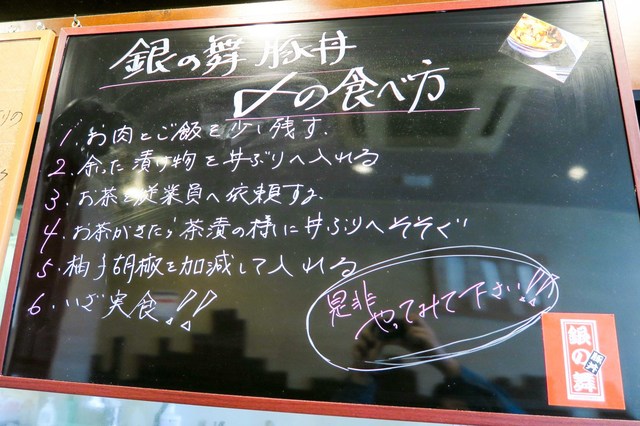 銀の舞 豚丼
〆の食べ方
1. お肉とご飯を少し残す.
2. 余った漬け物を丼ぶりへ入れる
3. お茶を従業員へ依頼する
4. お茶がきたら茶漬の様に丼ぶりへそそぐ
5. 柚子胡椒を加減して入れる
6. いざ実食!!
是非
やってみて下さい!!
銀の舞
豚丼